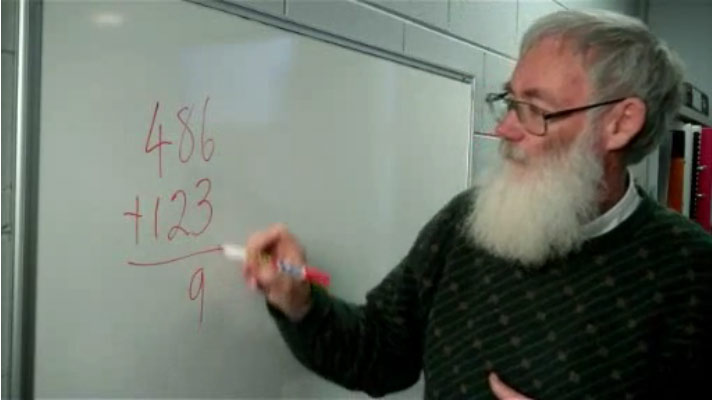 486
+123
9